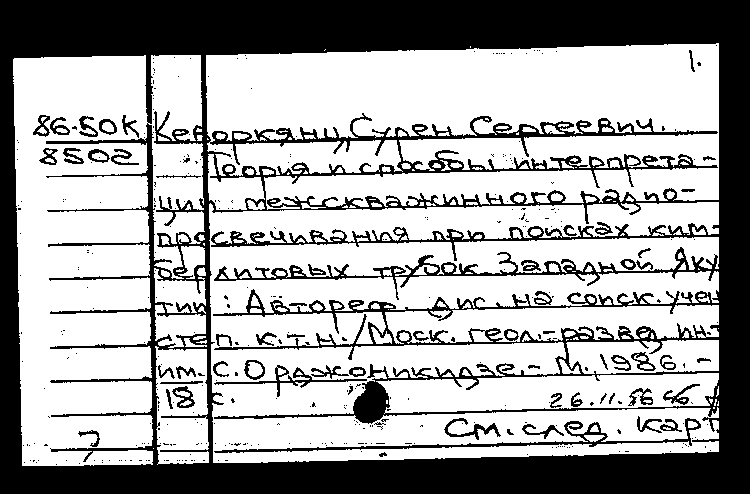 1.
86-50К Кеворкянц, Сурен Сергеевич.
850а Теория и способы интерпрета-
ции межскважинного радио-
просвечивания при поисках ким-
берлитовых трубок Западной Яку
тии : Автореф. дис. на соиск. учен
степ. к.т.н. / Моск. геол.-развед. ин-т
им. С. Орджоникидзе. - М., 1986. -
18 с.
26.11.86
См. след. карт